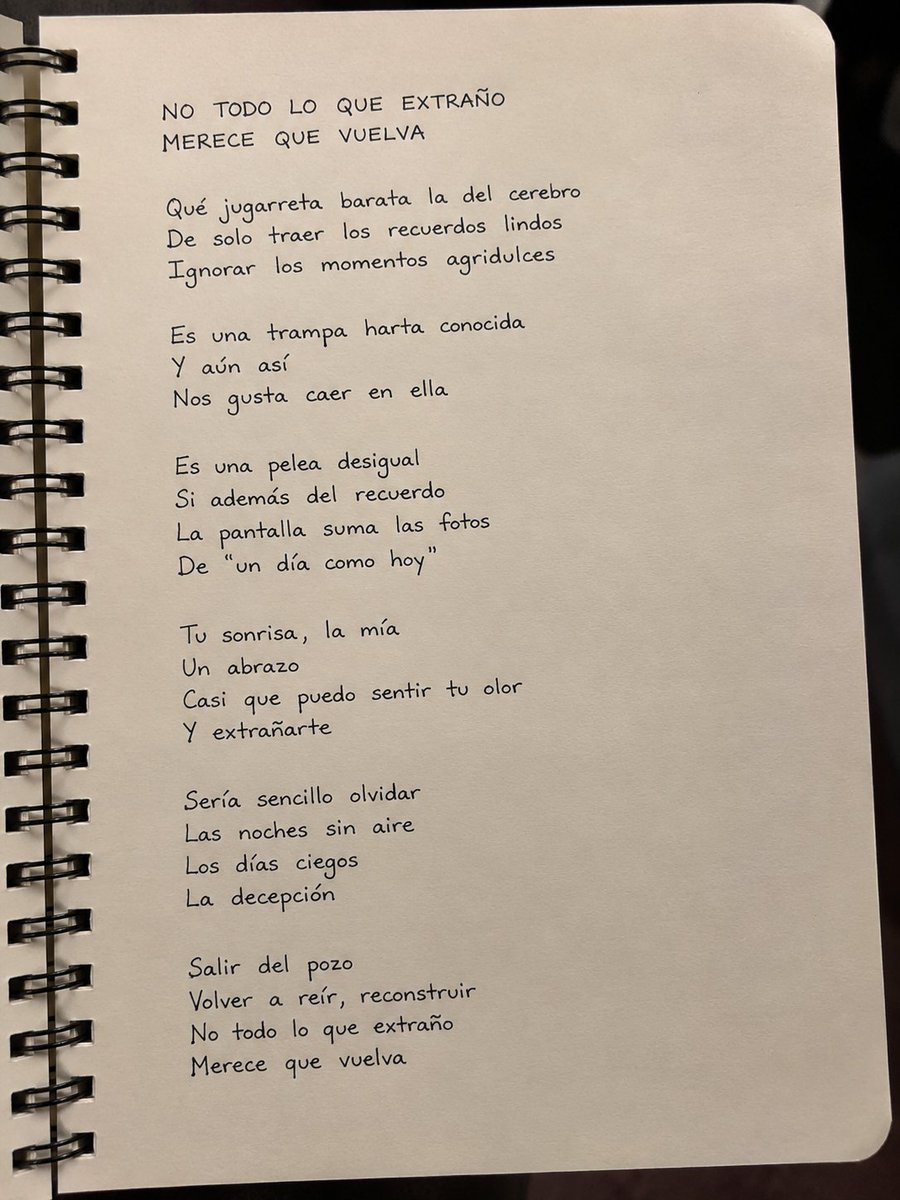 NO TODO LO QUE EXTRAÑO
MERECE QUE VUELVA
Qué jugarreta barata la del cerebro
De solo traer los recuerdos lindos
Ignorar los momentos agridulces
Es una trampa harta conocida
Y aún así
Nos gusta caer en ella
Es una pelea desigual
Si además del recuerdo
La pantalla suma las fotos
De “un día como hoy”
Tu sonrisa, la mía
Un abrazo
Casi que puedo sentir tu olor
Y extrañarte
Sería sencillo olvidar
Las noches sin aire
Los días ciegos
La decepción
Salir del pozo
Volver a reír, reconstruir
No todo lo que extraño
Merece que vuelva